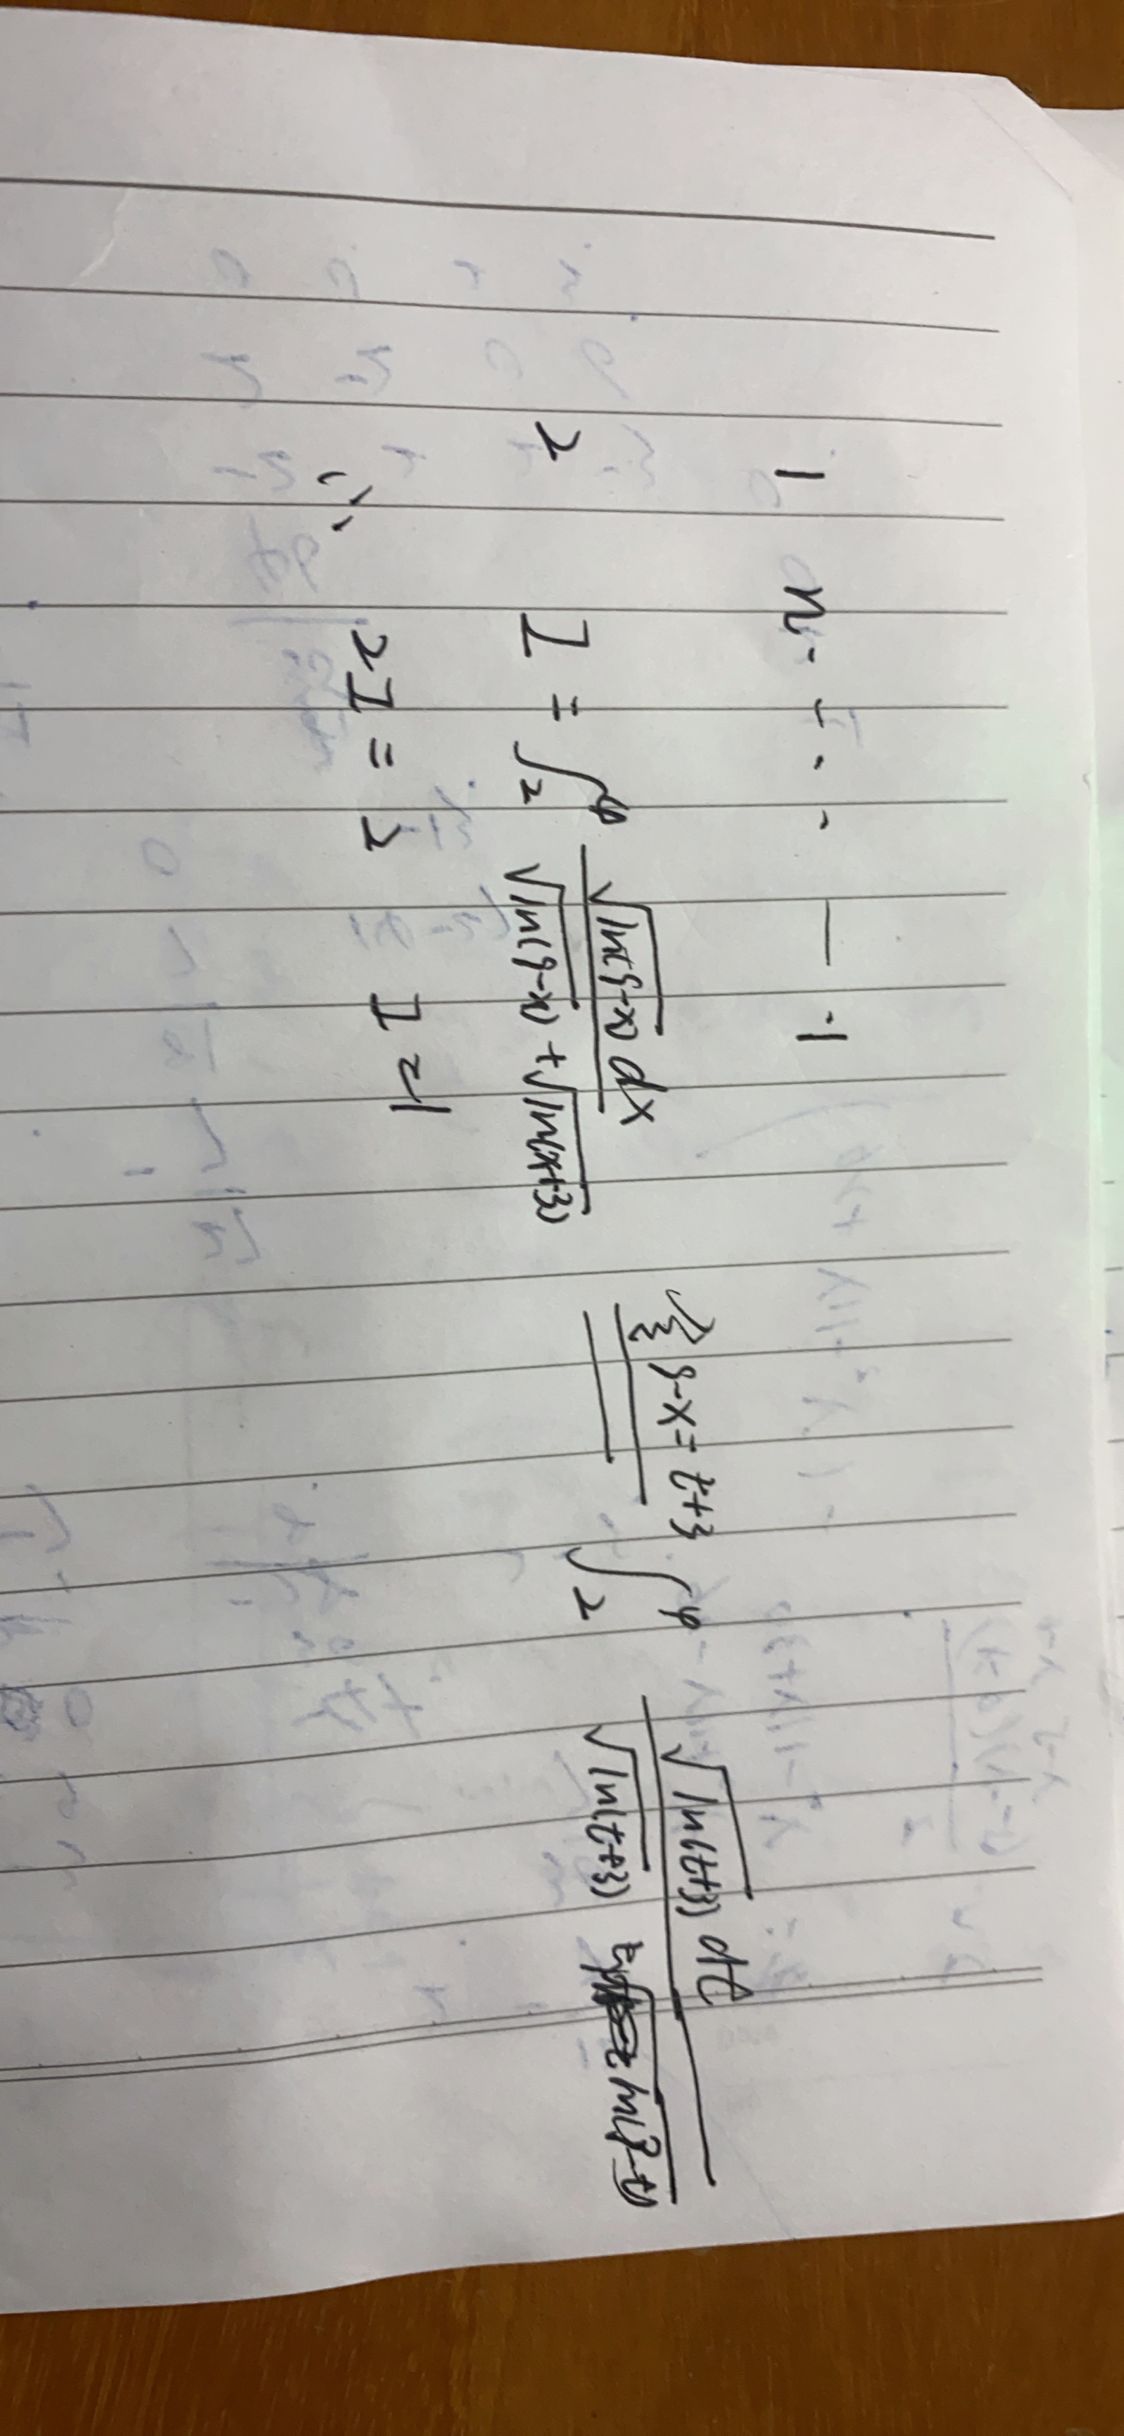 1 n- - - - — -1
2 I = ∫₂⁴ √ln(9-x) dx / (√ln(9-x) + √ln(x+3)) 令 9-x = t+3 ∫₂⁴ √ln(t+3) dt / (√ln(t+3) + √ln(9-t))
∴ 2I = 2 I = 1